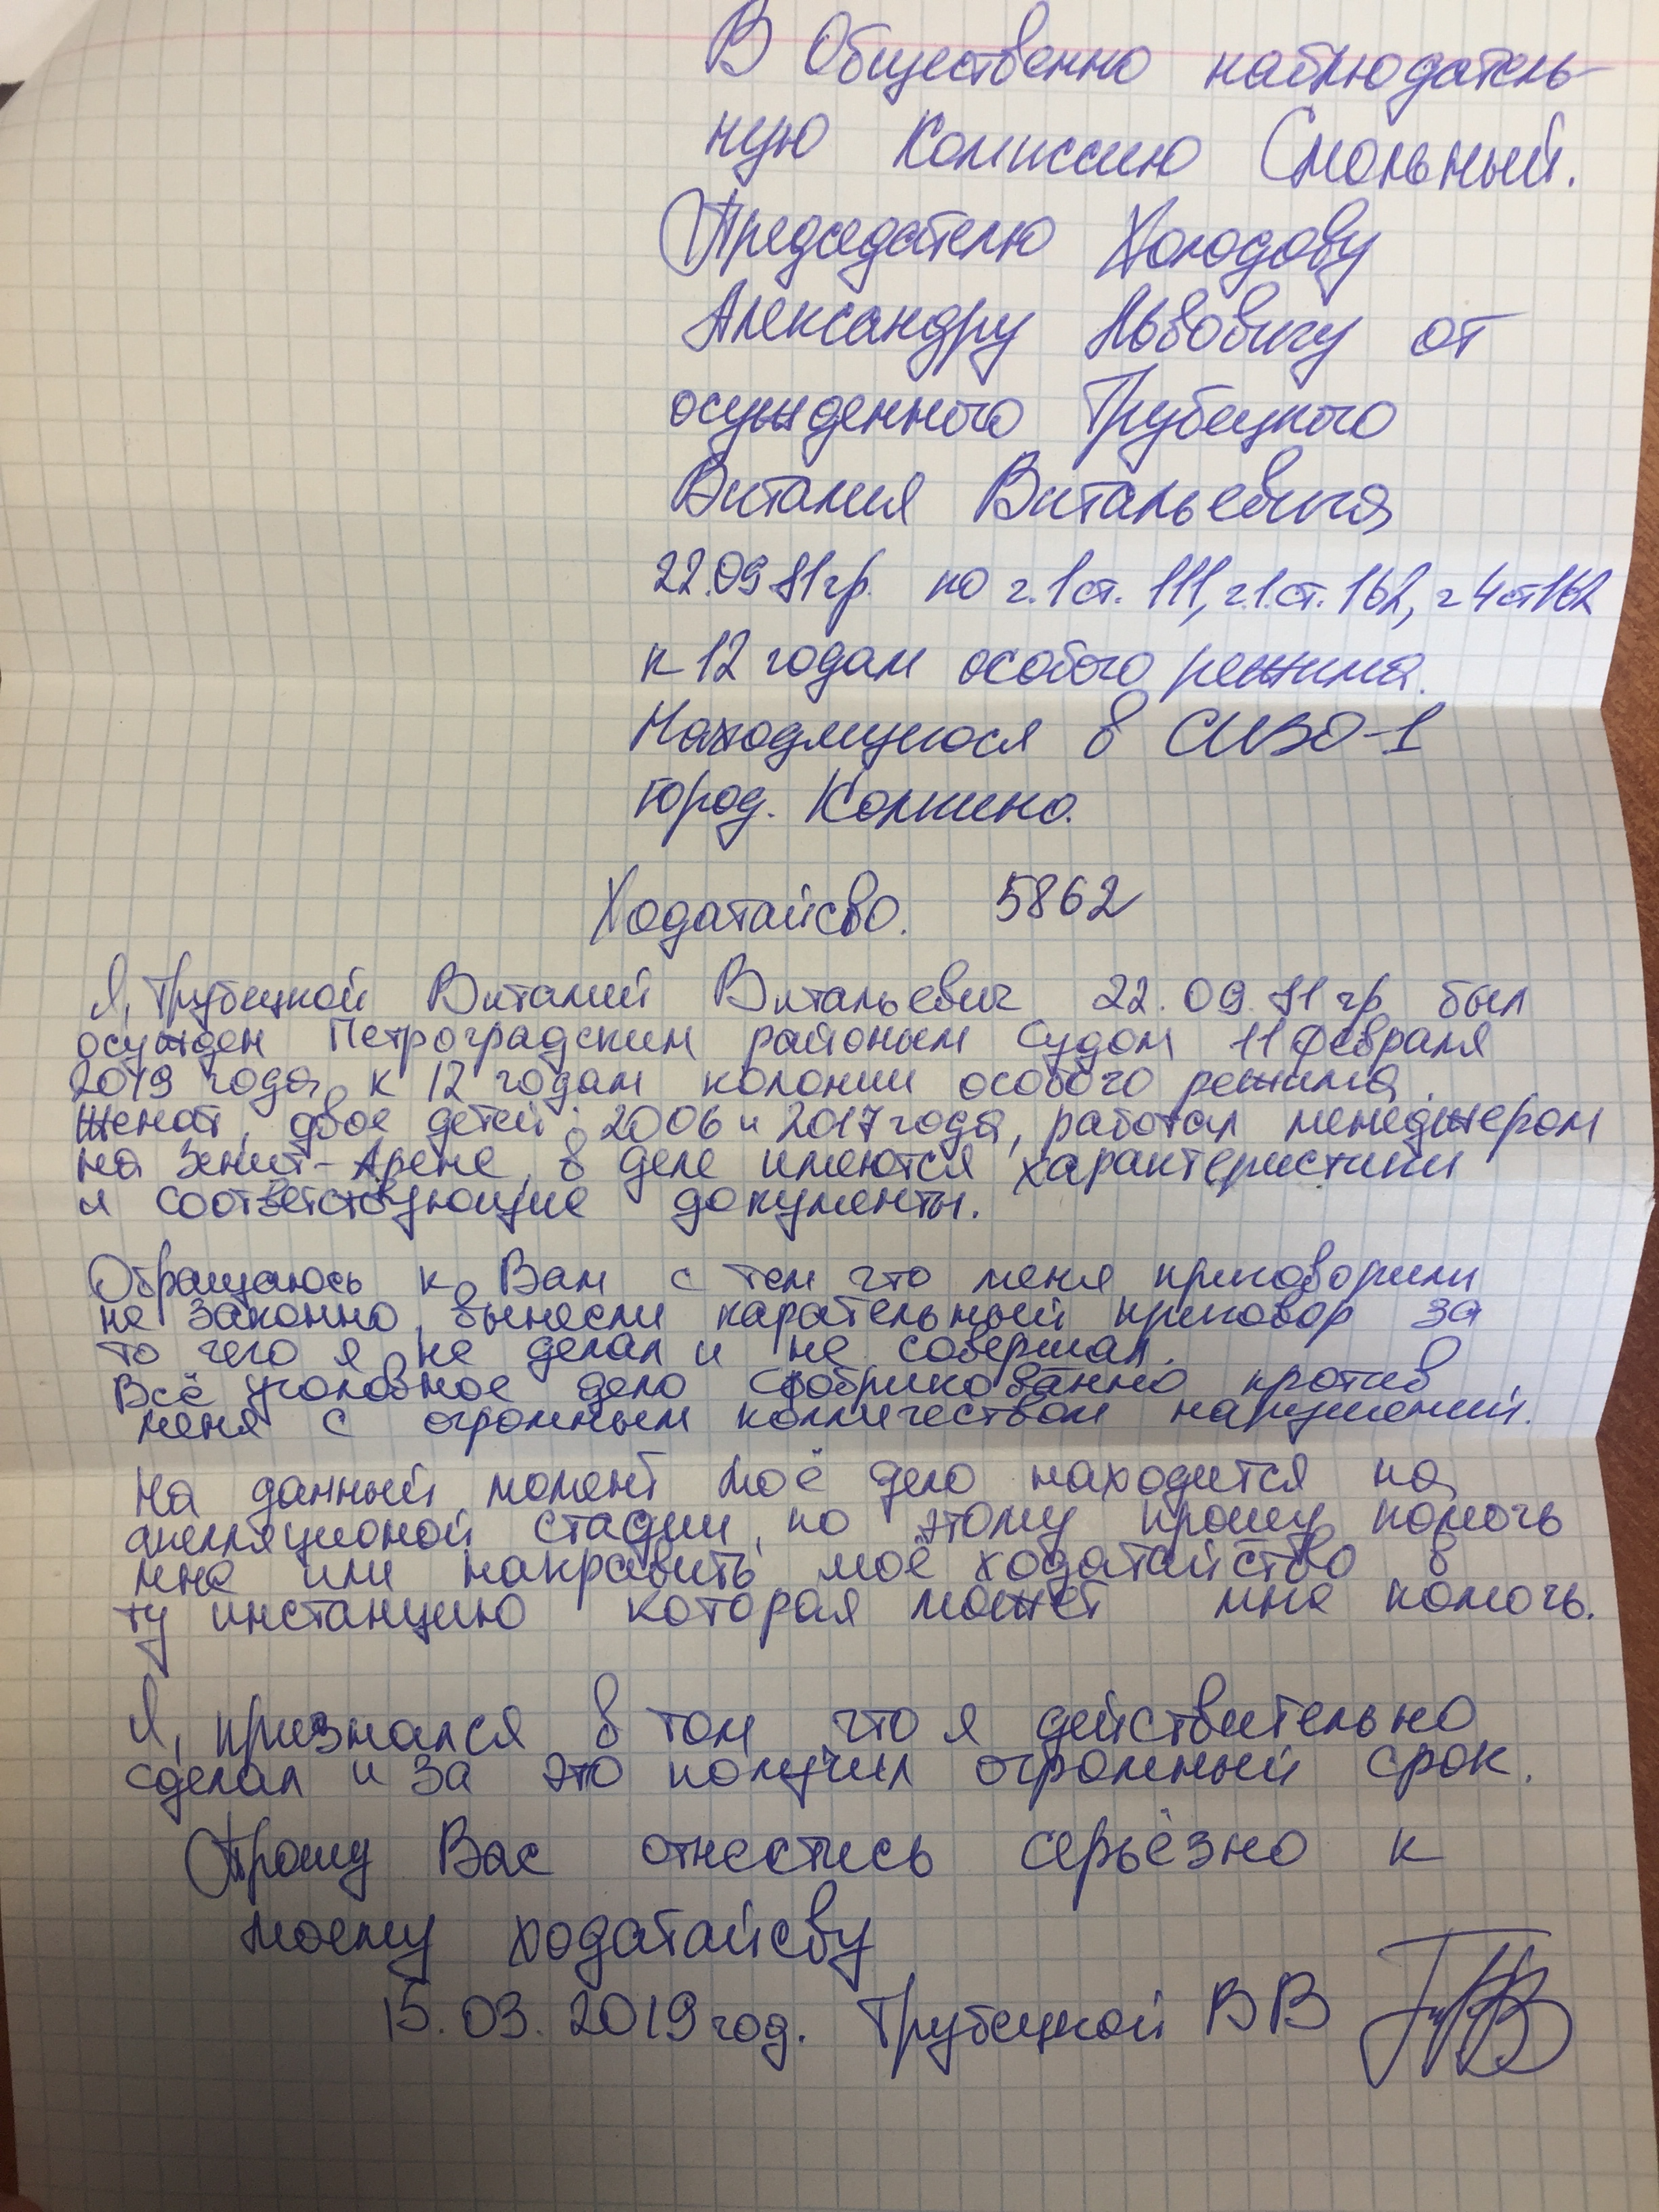 В Общественно наблюдатель-
ную Комиссию Смольный.
Председателю Холодову
Александру Львовичу от
осужденного Трубецкого
Виталия Витальевича
22.09.81гр. по ч.1ст. 111, ч.1.ст. 162, ч4ст162
к 12 годам особого режима.
Находящегося в СИЗО-1
город. Колпино.
Ходатайсво. 5862
Я, Трубецкой Виталий Витальевич 22.09.81гр был
осужден Петроградским районым Судом 11 февраля
2019 года к 12 годам колонии особого режима.
Женат, двое детей: 2006 и 2017 года, работал менеджером
на Зенит-Арене, в деле имеются характеристики
и соответствующие документы.
Обращаюсь к Вам с тем что меня приговорили
не законно, вынесли карательный приговор за
то чего я не делал и не совершал.
Всё уголовное дело сфобрикованно против
меня с огромным колличеством нарушений.
На данный момент моё дело находится на
апелляционой стадии, по этому прошу помочь
мне или направить моё ходатайство в
ту инстанцию которая может мне помочь.
Я, признался в том что я действительно
сделал и за это получил огромный срок.
Прошу Вас отнестись серьёзно к
моему ходатайсву
15.03.2019 год. Трубецкой ВВ